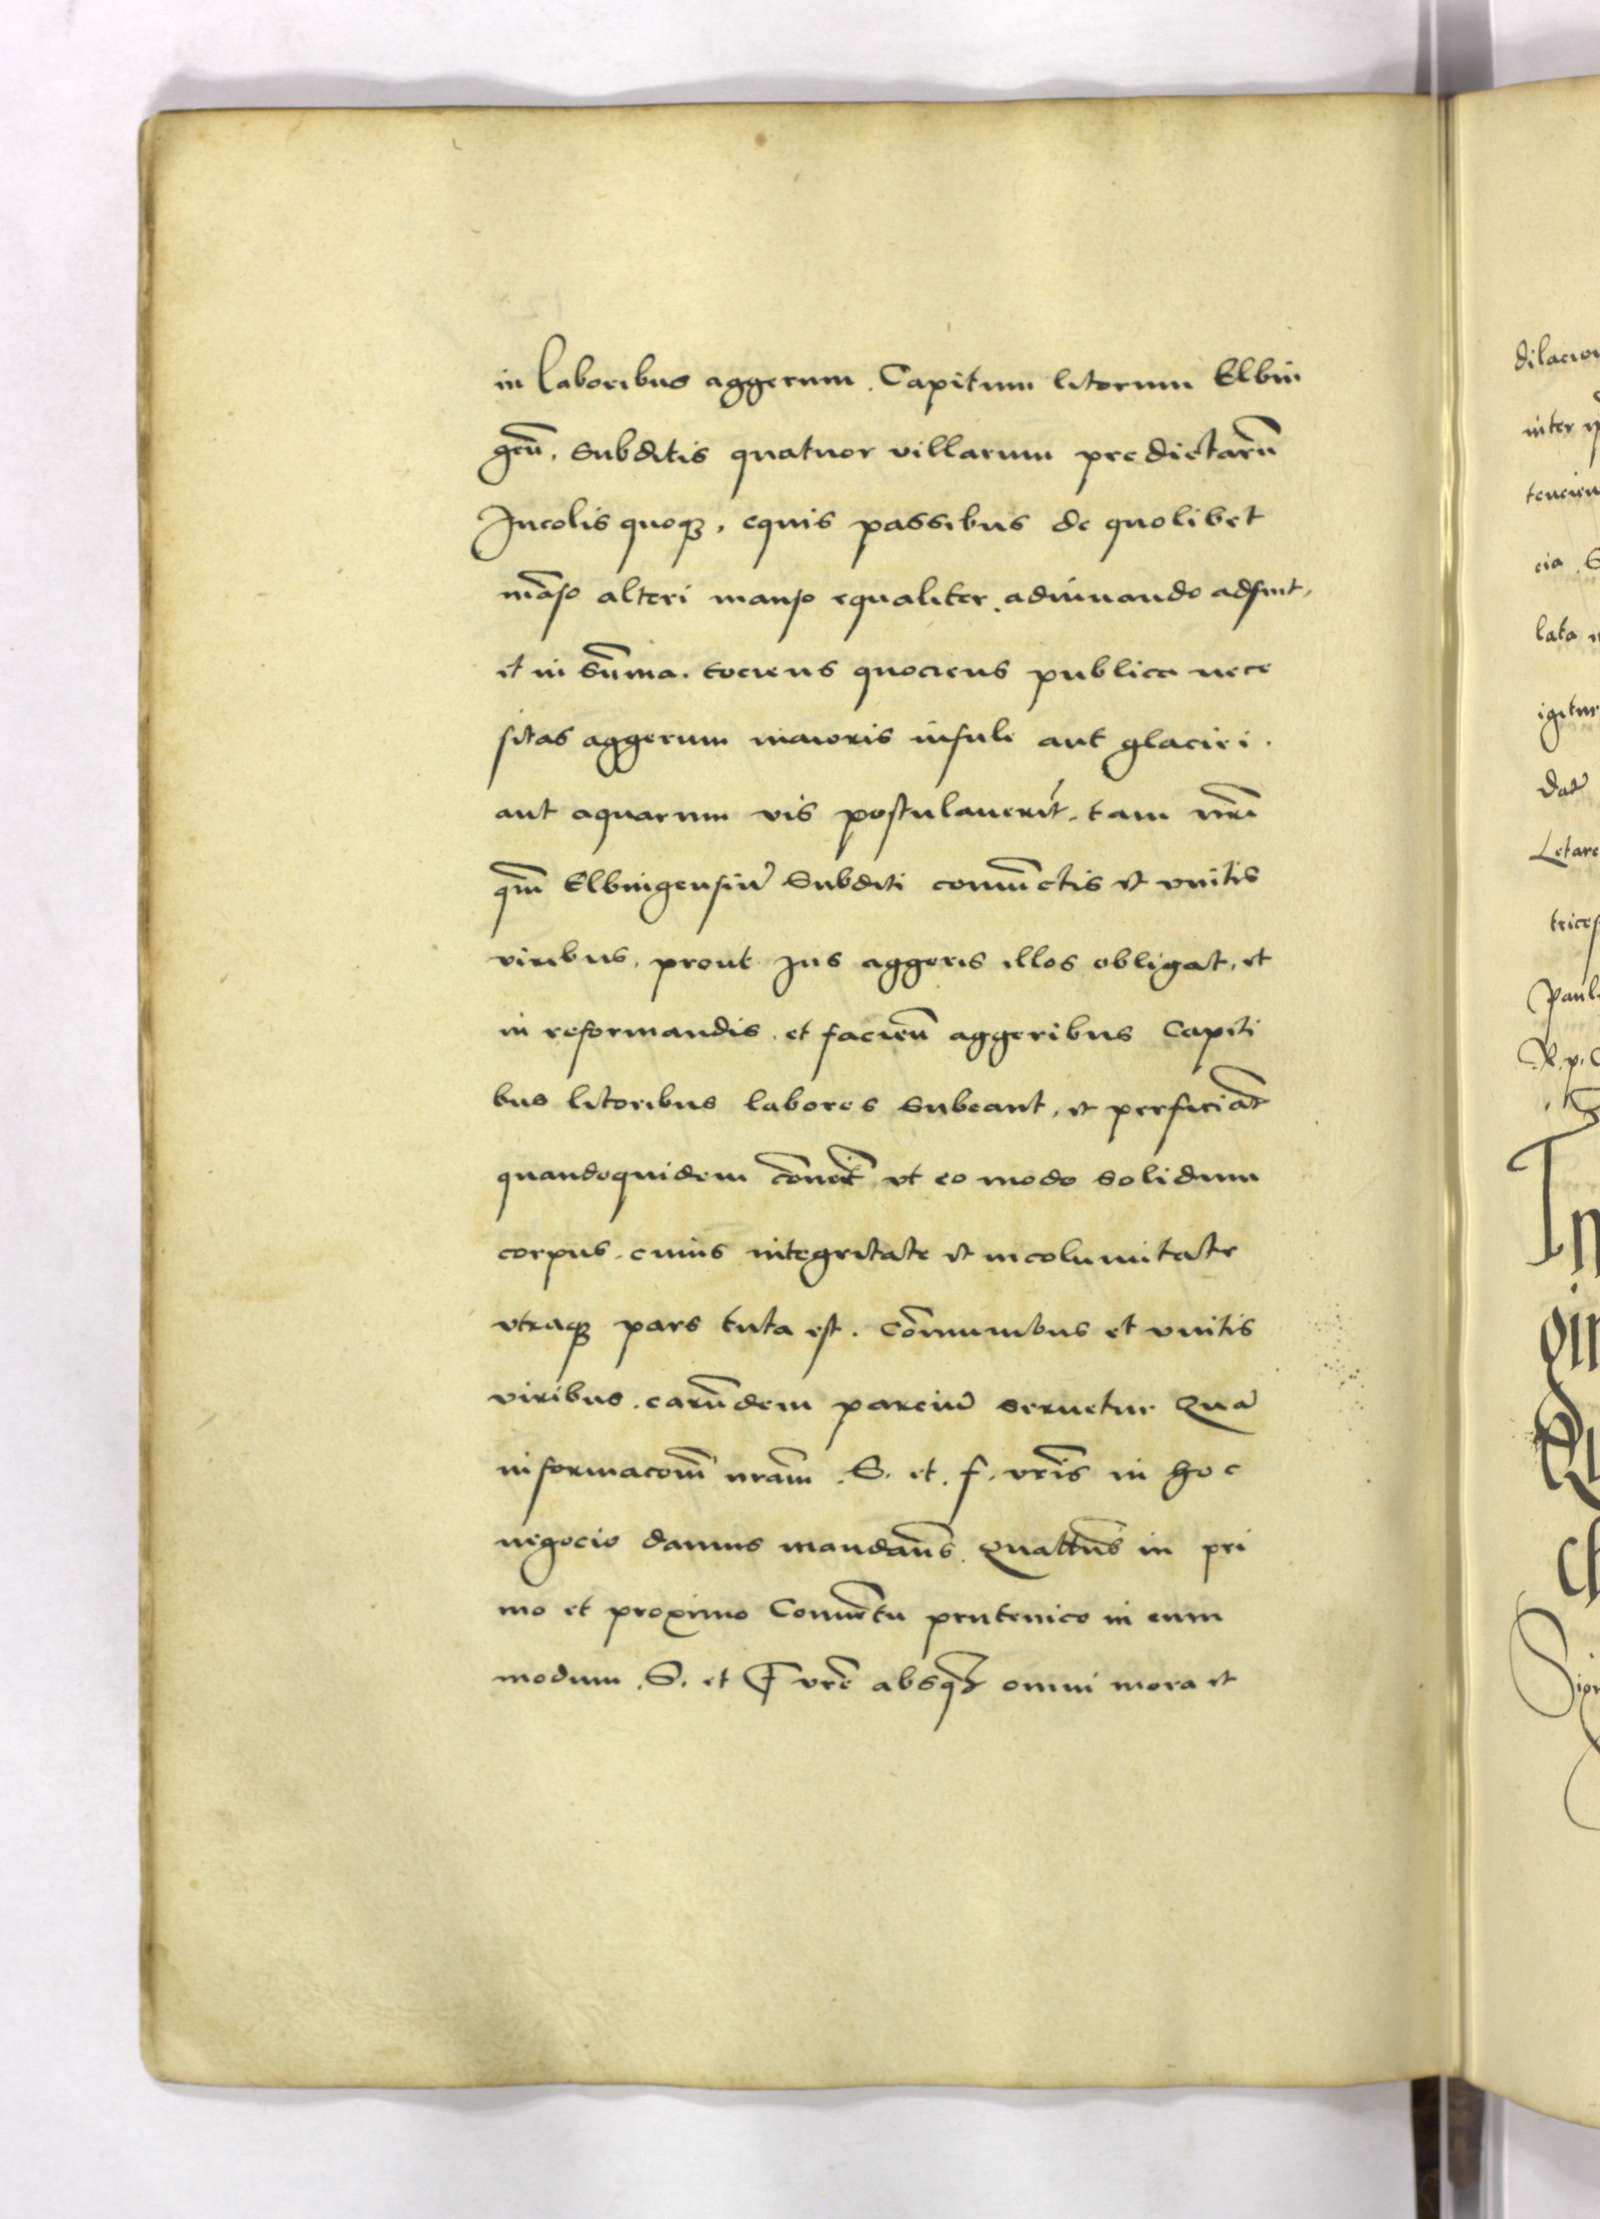 in laboribus aggerum. Capitum litorum Elbin
geñ. Subditis quatuor villarum predictarū
Incolis quoqȝ, equis passibus de quolibet
māso alteri manso equaliter adiuuando adsint,
et in Sūma. tociens quociens publica nece
sitas aggerum maioris insule aut glaciei.
aut aquarum vis postulauerit. tam nr̄i
qm̄ Elbingensiū Subditi coniūctis et vnitis
viribus. prout Jus aggeris illos obligat, et
in reformandis et facieñ aggeribus Capiti
bus litoribus labores Subeant, et perficiāt
quandoquidem conueīt vt eo modo solidum
corpus. cuius integritate et incolumitate
vtraqȝ pars tuta est. cōmunibus et vnitis
viribus. earūdem parciū seruetur Quā
informacoēm nram̄ .S. et. f. vrīs in hoc
negocio damus mandañs. Quatēus in pri
mo et proximo Conuētu prutenico in eum
modum .S. et F vrē absqȝ omni mora et
dilacion
inter
cia
lata
igitur
Datū
Letare
trices
Paul
R. p.